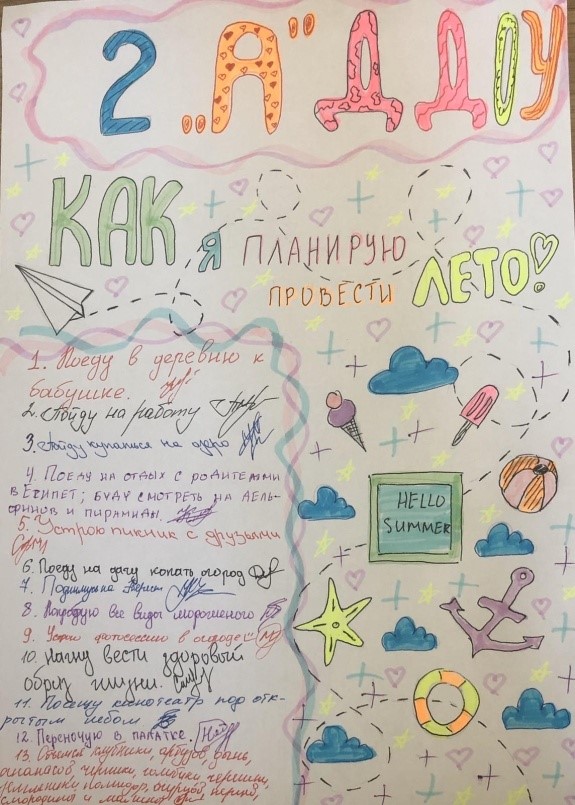 2 „А" ДДОУ
КАК Я ПЛАНИРУЮ
ПРОВЕСТИ ЛЕТО!
1. Поеду в деревню к
бабушке.
2. Пойду на работу
3. Пойду купаться на озеро
4. Поеду на отдых с родителями
в Египет; буду смотреть на дель-
финов и пирамиды.
5. Устрою пикник с друзьями
6. Поеду на дачу копать огород
7. Поднимусь на Эверест
8. Попробую все виды мороженого
9. Устрою фотосессию в огороде
10. Начну вести здоровый
образ жизни.
11. Посещу кинотеатр под отк-
рытым небом
12. Переночую в палатке.
13. Объемся клубники, арбузов, дынь,
ананасов, черники, голубики, черешни,
земляники, помидор, огурцов, перцев,
смородины и малины
HELLO
SUMMER